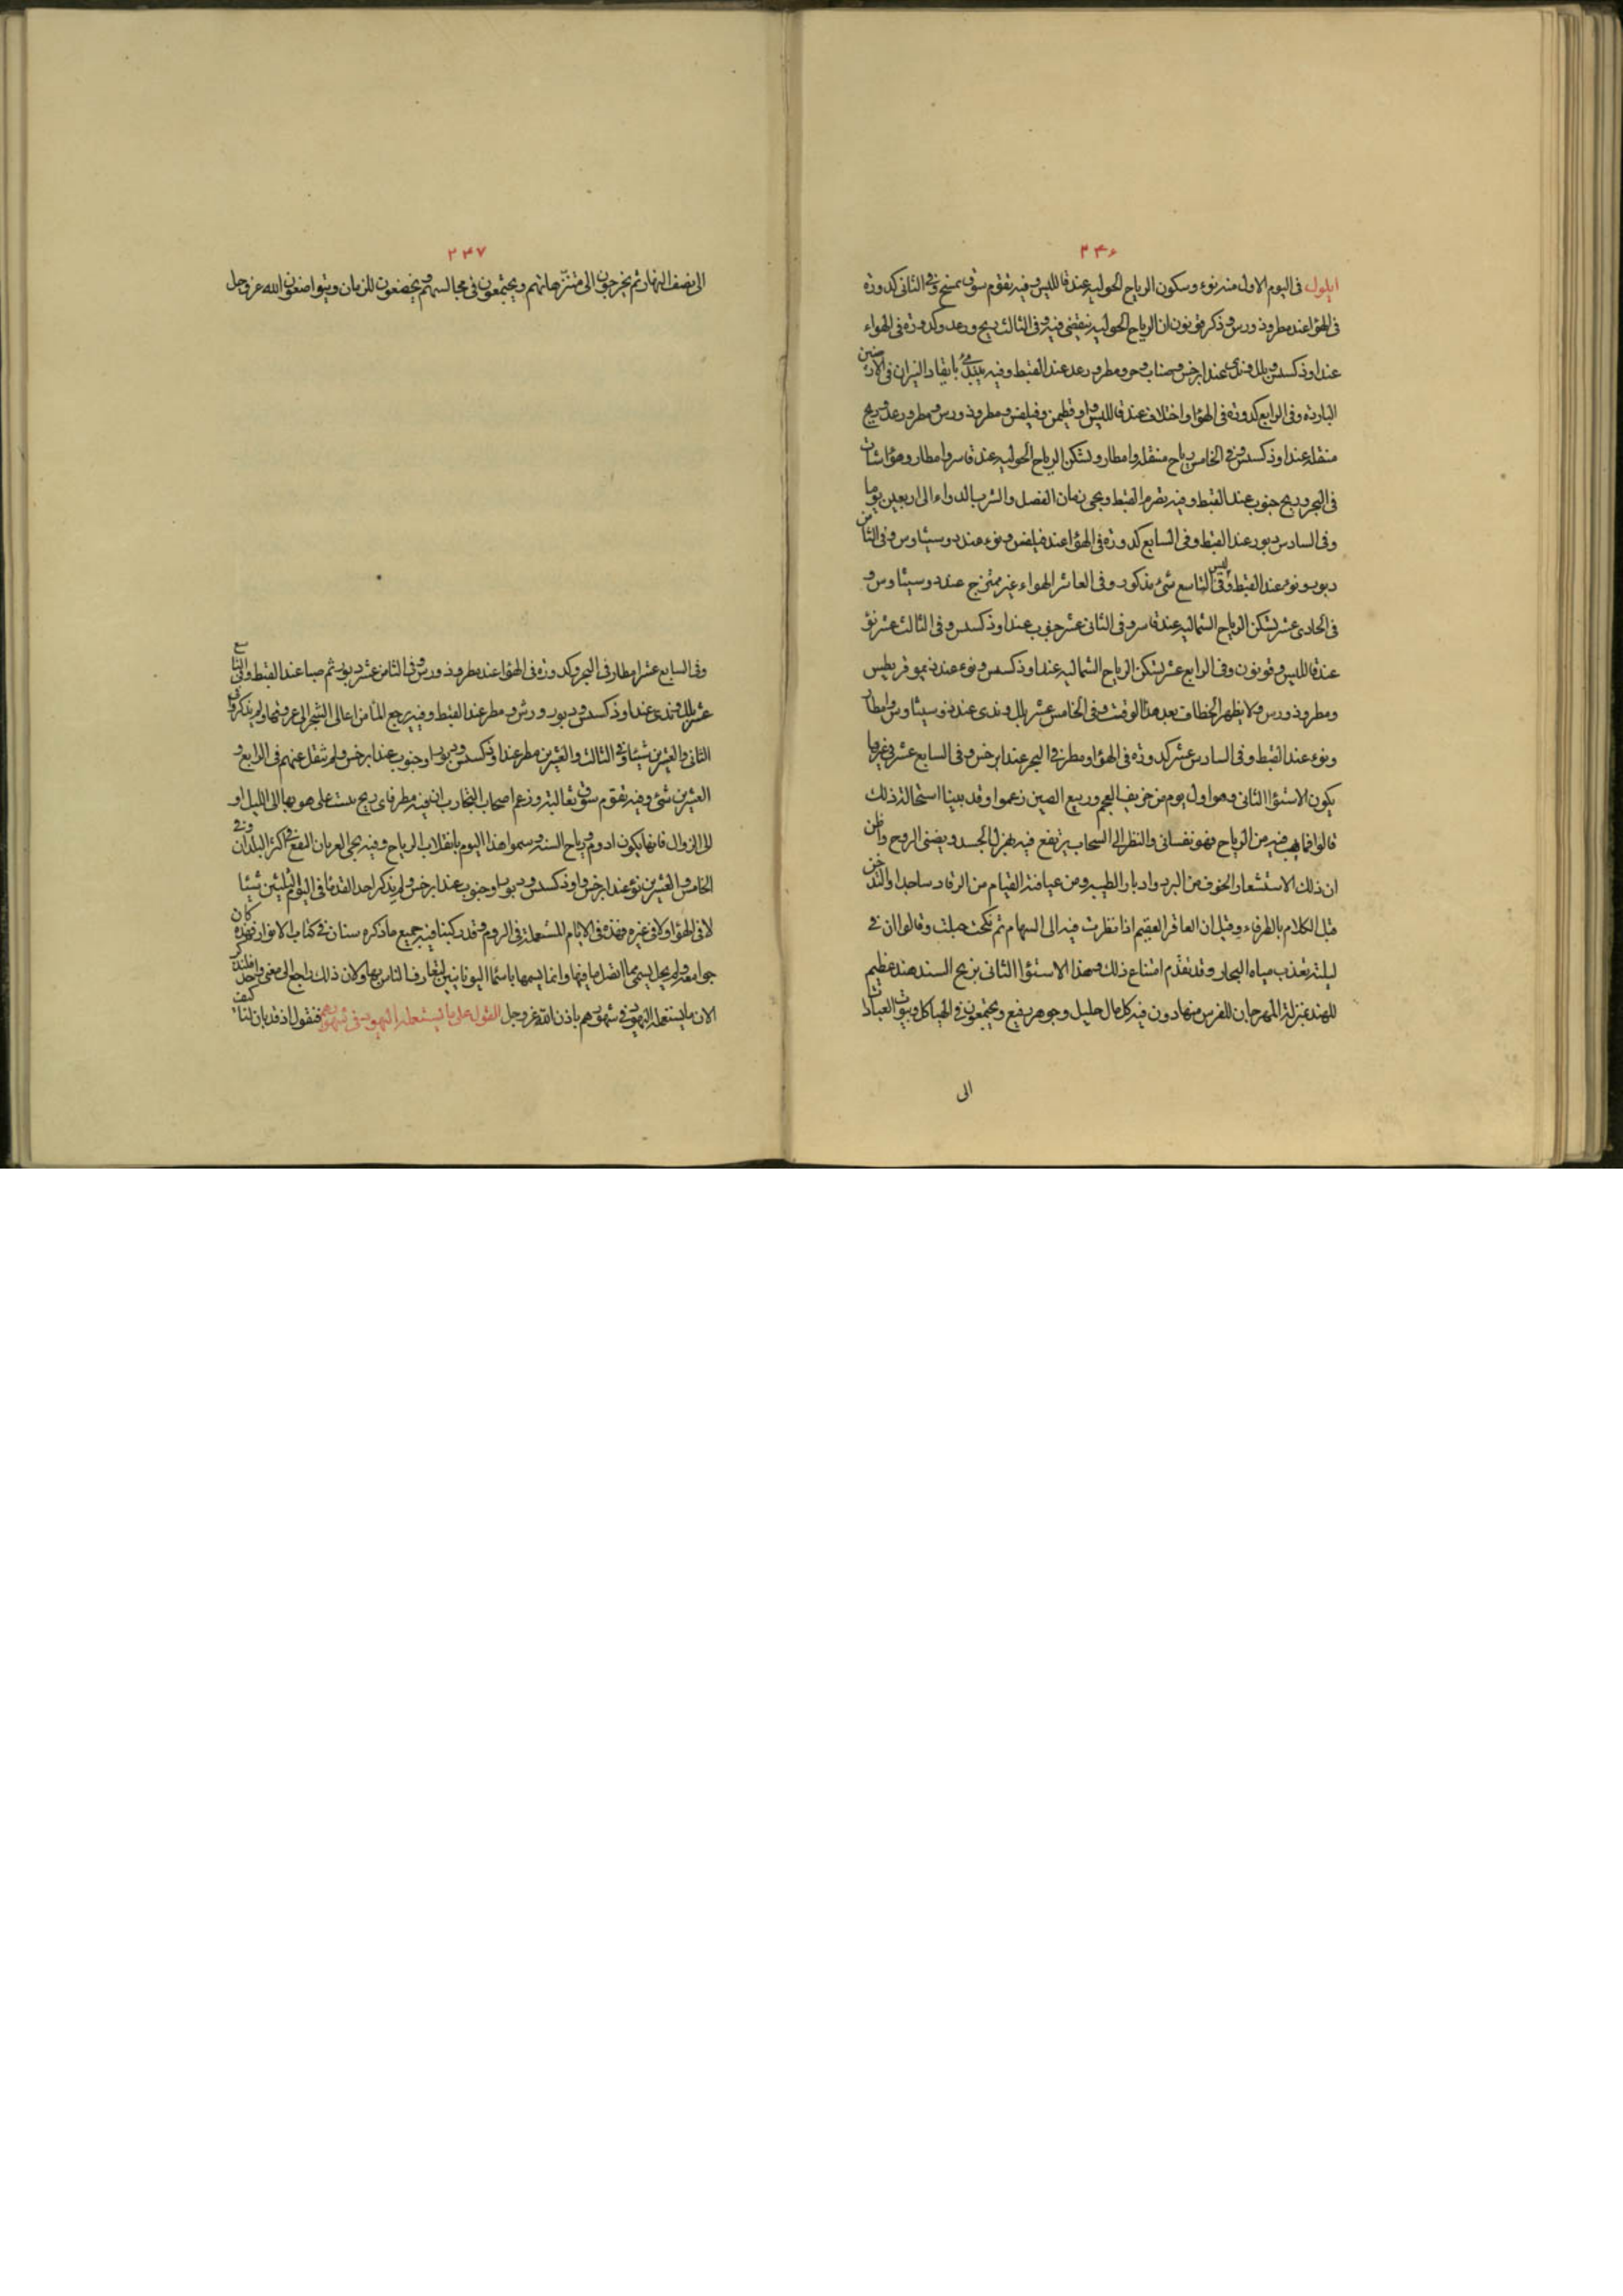 ٢٤٦
ايلول فى اليوم الاول منه نوء وسكون الرياح الحولية عند قالليس وفيه تقوم سوق بمنبج وفى الثانى كدورة
فى الهوا عند مطروذورس وذكر قونون ان الرياح الحولية تنقضى فيه وفى الثالث ريح ورعد وكدورة فى الهواء
عند اوذكسس وبلل وندى عند ابرخس وضباب وحر ومطر ورعد عند القبط وفيه يبتدئ بايقاد النيران فى الارضين
الباردة وفى الرابع كدورة فى الهوا واختلاف عند قالليس واوقطيمن وفيلفس ومطروذورس ومطر ورعد وريح
منقلة عند اوذكسس وفى الخامس رياح منقلة وامطار ولتسكن الرياح الحولية عند قاسر وامطار وهوا شات
فى البحر وريح جنوب عند القبط وفيه يصرم القبط ويجى زمان الفصد والشرب الدواء الى اربعين يوما
وفى السادس دبور عند القبط وفى السابع كدورة فى الهوا عند فيلفس ونوء عند دوسيثاوس وفى الثامن
دبور ونوء عند القبط وليس فى التاسع شئ مذكور وفى العاشر الهواء غير ممتزج عند دوسيثاوس و
فى الحادى عشر تسكن الرياح الشمالية عند قاسر وفى الثانى عشر جنوب عند اوذكسس وفى الثالث عشر نوء
عند قالليس وقونون وفى الرابع عشر تسكن الرياح الشمالية عند اوذكسس ونوء عند ذيموقريطيس
ومطروذورس ولا يظهر الخطاف بعد هذا الوقت وفى الخامس عشر بلل وندى عند دوسيثاوس وامطار
ونوء عند القبط وفى السادس عشر كدورة فى الهوا ومطر فى البحر عند ابرخس وفى السابع عشر فى غروبا
يكون الاستوا الثانى وهو اول يوم من خريف العجم وربيع الصين زعموا وقد بينا استحالة ذلك
قالوا فما يهب فيه من الرياح فهو نفسانى والنظر الى السحاب يرتفع فيه يهزل الجسد ويضنى الروح واظن
ان ذلك الاستشعار الخوف من البرد وادبار الطيبة ومن عيافته القيام من الرقاد ساجدا والتدخن
قبل الكلام بالطرفاء وقيل ان العاقر العقيم اذا نظرت فيه الى السها ثم نكحت حبلت وقالوا ان فى
ليلته تعذب مياه البحار وقد تقدم امتناع ذلك وهذا الاستوا الثانى بزيج السند هند عظيم
للهند بمنزلة المهرجان للفرس يتهادون فيه كل مال جليل وجوهر رفيع ويجتمعون فى الهياكل وبيوت العبادات
الى
٢٤٧
الى نصف النهار ثم يخرجون الى متنزهاتهم ويجتمعون فى مجالسهم ويخضعون للزمان ويتواضعون الله عز وجل
وفى السابع عشر امطار فى البحر وكدورة فى الهوا عند مطروذورس وفى الثامن عشر دبور ثم صبا عند القبط وفى التاسع
عشر بلل وندى عند اوذكسس ودبور ورش ومطر عند القبط وفيه يرجع الما من اعالى الشجر الى عروقها ولم يذكر فى
الثانى والعشرين شيئا وفى الثالث والعشرين مطر عند اوذكسس ودبور او جنوب عند ابرخس ولم ينقل عنهم فى الرابع و
العشرين شئ وفيه تقوم سوق تعالبة وزعم اصحاب التجارب انه فيه مطر فاى ريح ثبت على هوبها الى الليل او
الى الزوال فانها يكون ادوم رياح السنة وسموا هذا اليوم بانقلاب الرياح وفيه يجى الغربان البقع فى اكثر البلدان وفى
الخامس والعشرين نوء عند ابرخس واوذكسس ودبور او جنوب عند ابرخس ولم يذكر احد القدما فى اليوم الثلثين شيئا
لا فى الهوا ولا فى غيره فهذه فى الايام المستعملة فى الروم وقد ركبنا فيه جميع ما ذكره سنان فى كتاب الانوار فهذه كان
جوامعه ولم يحل بشئ مما اتصل ما فيها وانما يسمها باسما اليونانيين لتعارف الناس بها ولان ذلك راجع الى معنى واحد فلنذكر
الان ما يستعمله اليهود فى شهورهم باذن الله عز وجل القول على ما يستعمله اليهود فى شهورهم فنقول اذ قد بان لنا كيف